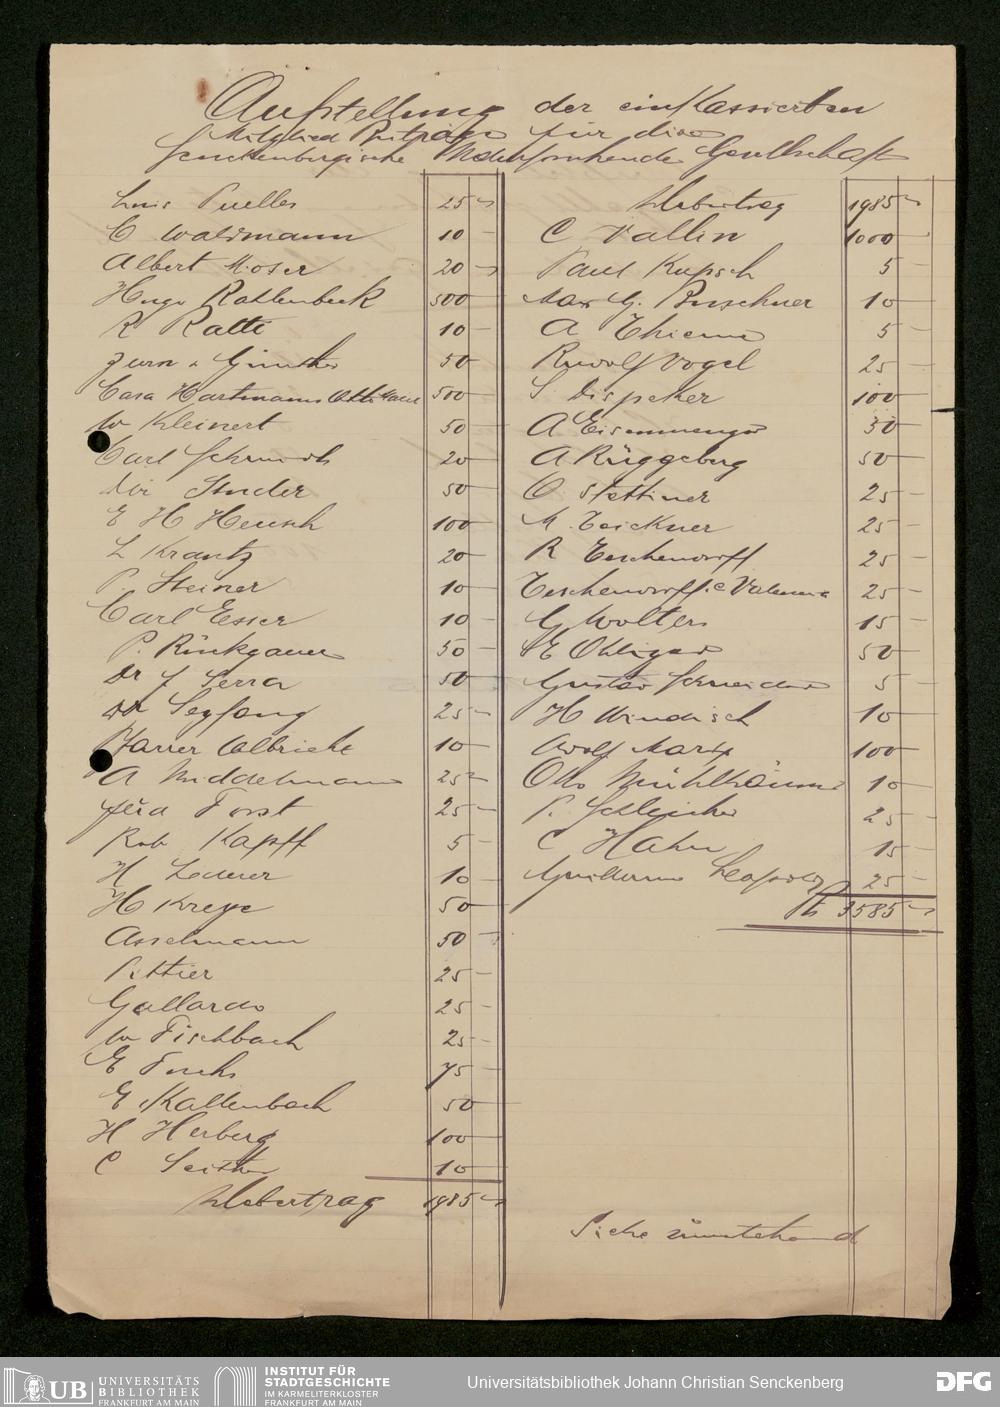 Aufstellung der einkassierten
Mitglied Beiträge für die
Senckenbergische Naturforschende Gesellschaft
Luis Puelles 25 -
C Waldmann 10 -
Albert Moser 20 -
Hugo Rahlenbeck 500 -
R Ratti 10 -
Zurn & Günther 50 -
Casa Hartmann Otto 500 -
W Kleinert 50 -
Carl Schmidt 20 -
Studer 50 -
E H Heusch 100 -
L Krantz 20 -
P. Steiner 10 -
Carl Esser 10 -
P. Rückgauer 50 -
Dr J Serra 50 -
Dr Seyfang 25 -
Pfarrer Olbricht 10 -
A Middelmann 25 -
Forst 25 -
Rob Kapff 5 -
H Lederer 10 -
H Kreye 50 -
Asselmann 50 -
Pittier 25 -
Gallardo 25 -
W Fischbach 25 -
E Fuchs 75 -
E Kaltenbach 50 -
H Herberg 100 -
C 10 -
Uebertrag 1985 -
Uebertrag 1985 -
C Vallin 1000 -
Paul Kupsch 5 -
Max G. Puschner 10 -
A Thieme 5 -
Rudolf Vogel 25 -
S Dispeker 100 -
A Eisenmenger 50 -
A Rüggeberg 50 -
O Stettiner 25 -
M. Teickner 25 -
R Teschendorff 25 -
Teschendorff & Co Valencia 25 -
G Wolters 15 -
E Obliger 50 -
Gustav Schneider 5 -
H Windisch 10 -
Adolf Marx 100 -
Otto Mühlhäuser 10 -
P. Schleicher 25 -
C Hahn 15 -
Guillermo Leopold 25 -
Pts 3585 -
Siehe umstehend
UB UNIVERSITÄTS
BIBLIOTHEK
FRANKFURT AM MAIN
INSTITUT FÜR
STADTGESCHICHTE
IM KARMELITERKLOSTER
FRANKFURT AM MAIN
Universitätsbibliothek Johann Christian Senckenberg
DFG